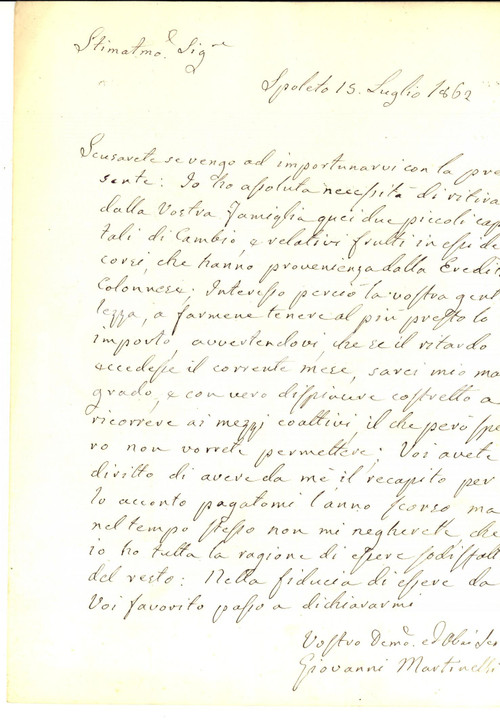 Stimatmo. Sigre
Spoleto 15. Luglio 1862
Scusarete se vengo ad importunarvi con la pre
sente: Io ho assoluta necessità di ritira
dalla Vostra Famiglia quei due piccoli cap
tali di Cambio, e relativi frutti in essi de
corsi, che hanno provenienza dalla Eredit
Colonnese: Interesso perciò la vostra gent
lezza, a farmene tenere al più presto lo
importo, avvertendovi, che se il ritardo
eccedesse il corrente mese, sarei mio ma
grado, e con vero dispiacere costretto a
ricorrere ai mezzi coattivi, il che però spe
ro non vorrete permettere; Voi avete
diritto di avere da mè il recapito per
lo acconto pagatomi l'anno scorso, ma
nel tempo stesso non mi negherete, che
io ho tutta la ragione di essere sodisfatt
del resto: Nella fiducia di essere da
Voi favorito passo a dichiararmi
Vostro Demo. ed Obbi Se
Giovanni Martinelli